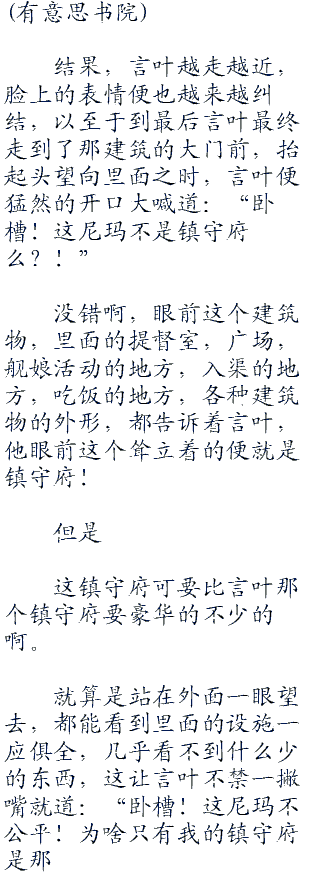 (有意思书院)
结果，言叶越走越近，
脸上的表情便也越来越纠
结，以至于到最后言叶最终
走到了那建筑的大门前，抬
起头望向里面之时，言叶便
猛然的开口大喊道：“卧
槽！这尼玛不是镇守府
么？！”
没错啊，眼前这个建筑
物，里面的提督室，广场，
舰娘活动的地方，入渠的地
方，吃饭的地方，各种建筑
物的外形，都告诉着言叶，
他眼前这个耸立着的便就是
镇守府！
但是
这镇守府可要比言叶那
个镇守府要豪华的不少的
啊。
就算是站在外面一眼望
去，都能看到里面的设施一
应俱全，几乎看不到什么少
的东西，这让言叶不禁一撇
嘴就道：“卧槽！这尼玛不
公平！为啥只有我的镇守府
是那